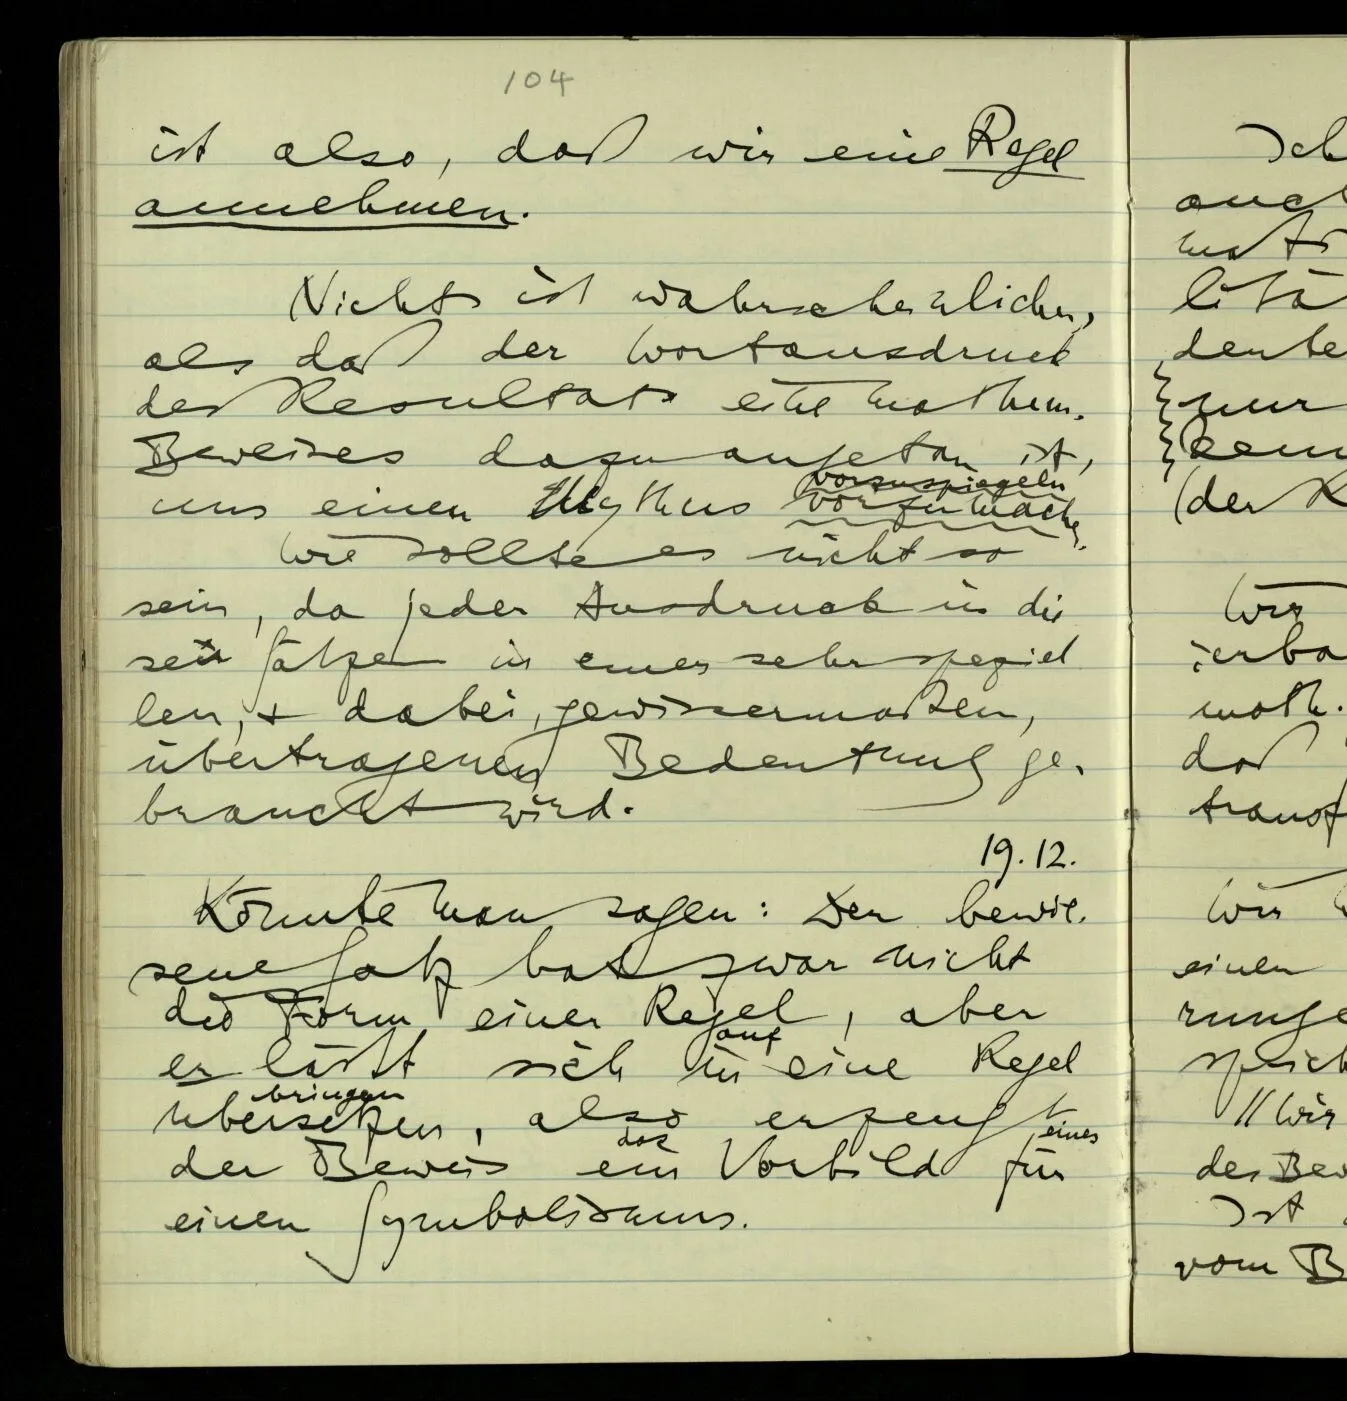 104
ist also, daß wir eine Regel
annehmen.
Nichts ist wahrscheinlicher,
als daß der Wortausdruck
des Resultats eines mathem.
Beweises dazu angetan ist,
vorzuspiegeln
uns einen Mythus vorzumachen.
Wie sollte es nicht so
sein, da jeder Ausdruck in die
sen Sätzen in einer sehr speziel
len, + dabei, gewissermaßen,
übertragenen Bedeutung ge-
braucht wird.
19.12.
Könnte man sagen: Der bewie-
sene Satz hat zwar nicht
die Form einer Regel, aber
auf
er läßt sich in eine Regel
bringen
übersetzen, also erzeugt
das eines
der Beweis ein Vorbild für
einen Symbolismus.
Ich
auch
litä
nur
(der
Wir
math.
daß
Wir
einen
// Wir
Ist
vom B